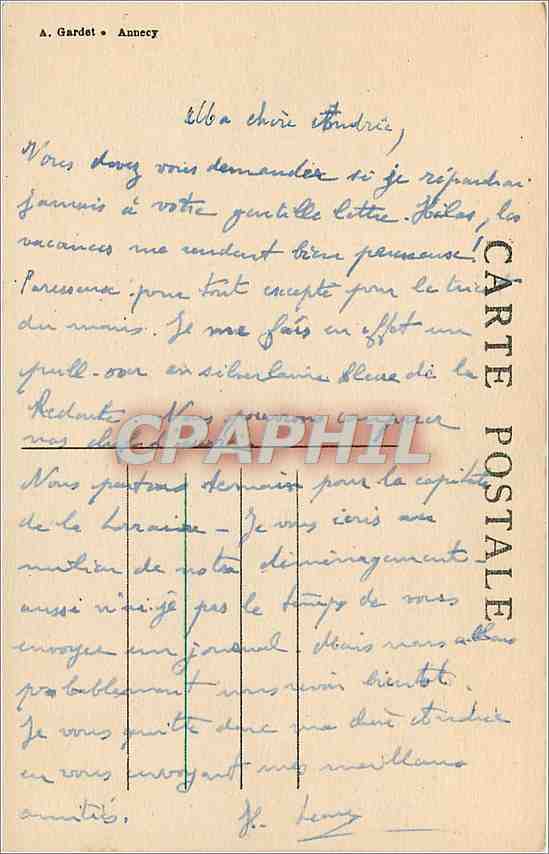 A. Gardet • Annecy
Ma chère Andrée,
Vous devez vous demander si je répondrai
jamais à votre gentille lettre. Hélas, les
vacances me rendent bien paresseuse!
Paresseuse pour tout excepté pour le tricot
du moins. Je me fais en effet un
pull-over en silverlaine bleue de la
Redoute. Nous pourrons comparer
nos
CPARPHIL
Nous partons demain pour la capitale
de la Lorraine - Je vous écris au
milieu de notre déménagement
aussi n'ai-je pas le temps de vous
envoyer un journal. Mais nous allons
probablement nous revoir bientôt.
Je vous quitte donc ma chère Andrée
en vous envoyant mes meilleures
amitiés.
CARTE POSTALE